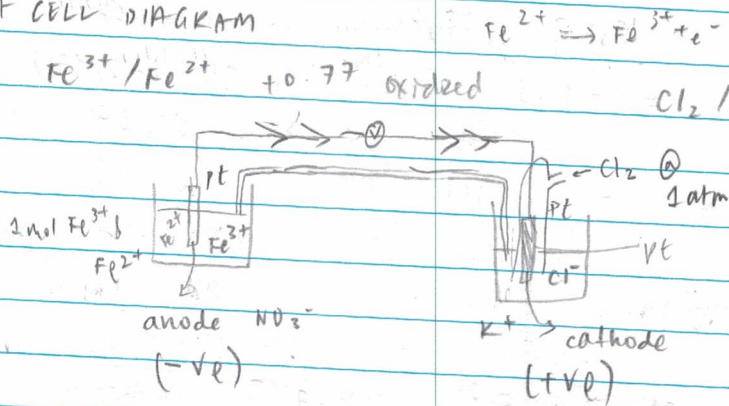 CELL DIAGRAM
Fe²⁺ ⟹ Fe³⁺ + e⁻
Fe³⁺/Fe²⁺ +0.77 oxidzed
Cl₂ /
V
pt
← Cl₂ @
1 atm
Pt
1 mol Fe³⁺ &
Fe²⁺
Fe²⁺
Fe³⁺
Pt
Cl⁻
anode NO₃⁻
K⁺
cathode
(-ve)
(+ve)